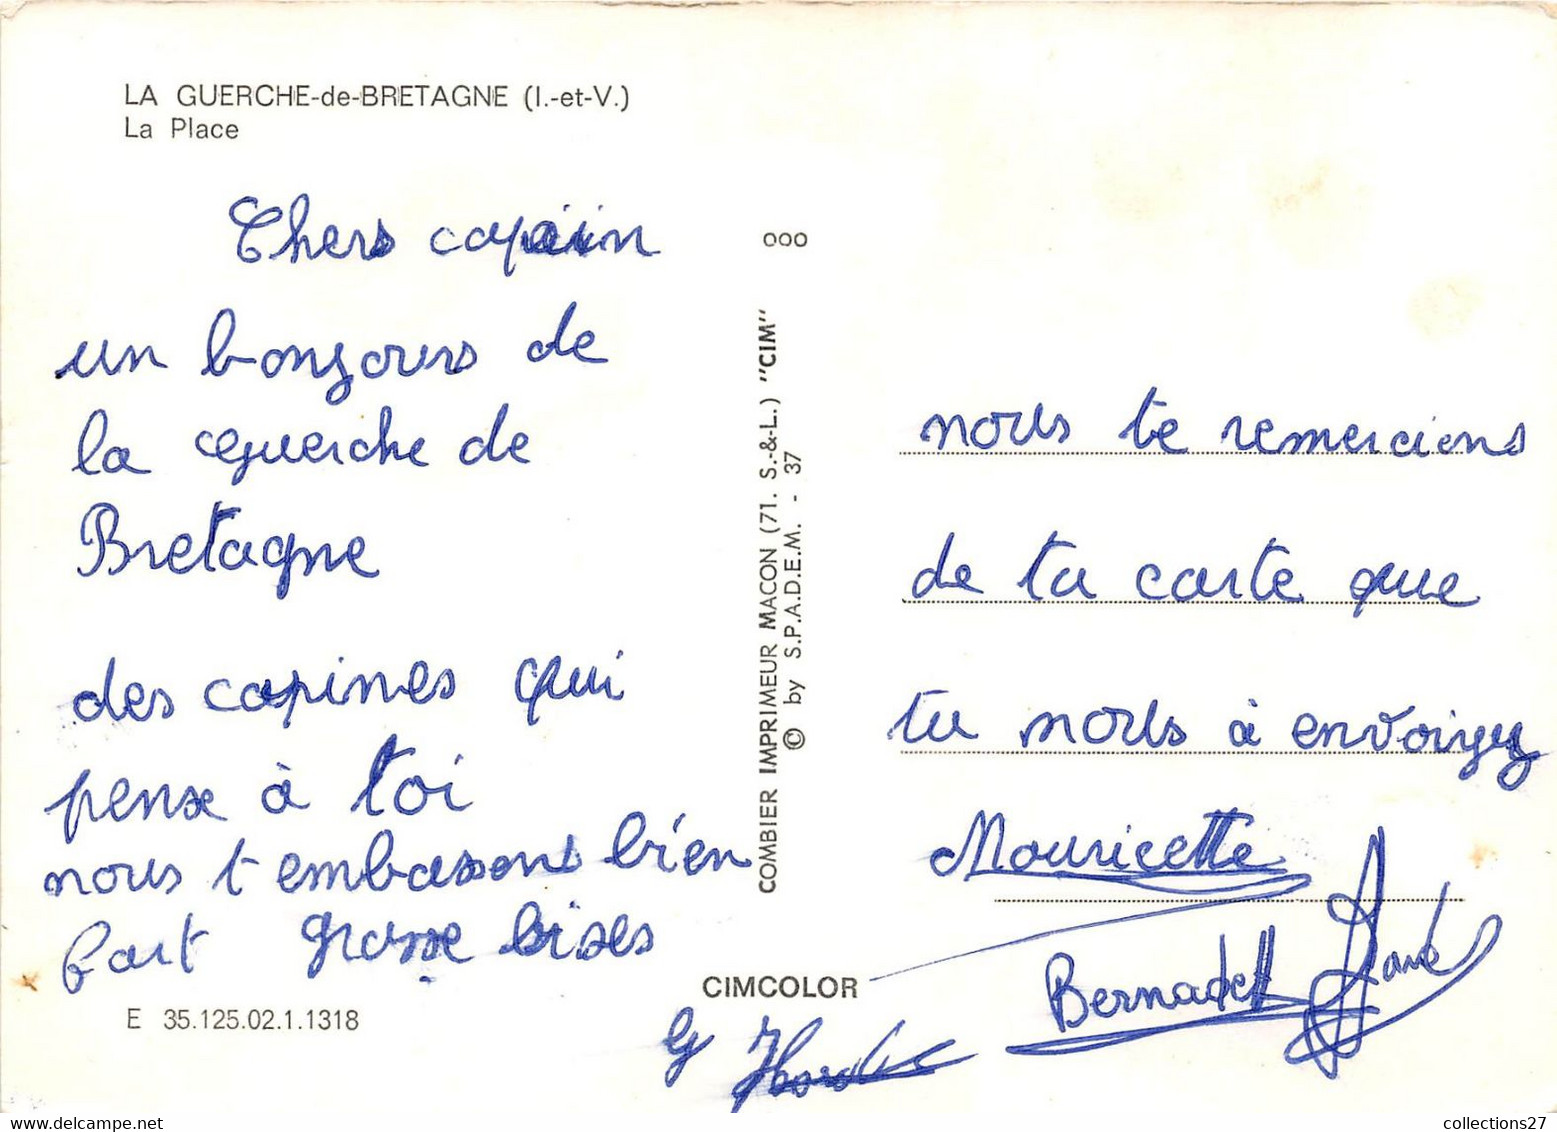 LA GUERCHE-de-BRETAGNE (I.-et-V.)
La Place
Chers copain
un bonzours de
la Guerche de
Bretagne
des copines qui
pense à toi
nous t embassons bien
fort grosse bises
E 35.125.02.1.1318
ooo
COMBIER IMPRIMEUR MACON (71. S.-&-L.) "CIM"
© by S.P.A.D.E.M. - 37
CIMCOLOR
nous te remercions
de ta carte que
tu nous à envoiyez
Mouricette
Bernadett
collections27